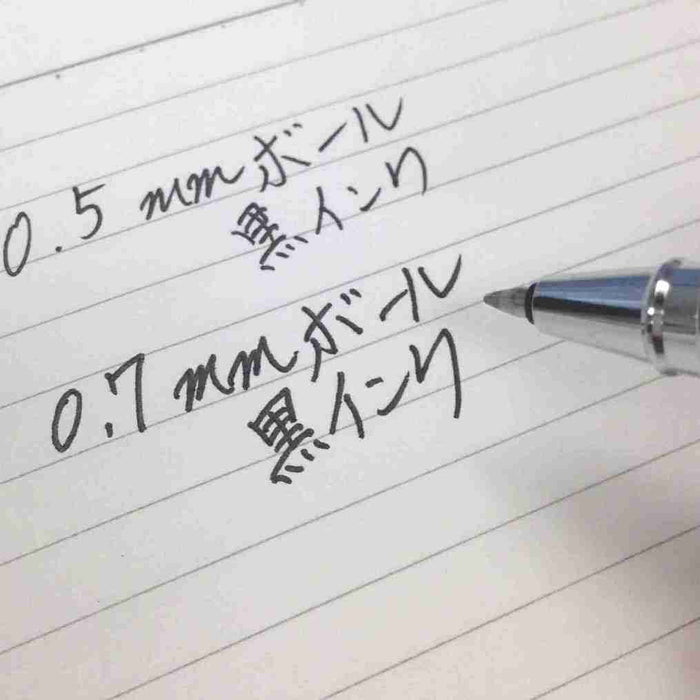 0.5 mm ボール
黒インク
0.7 mm ボール
黒インク